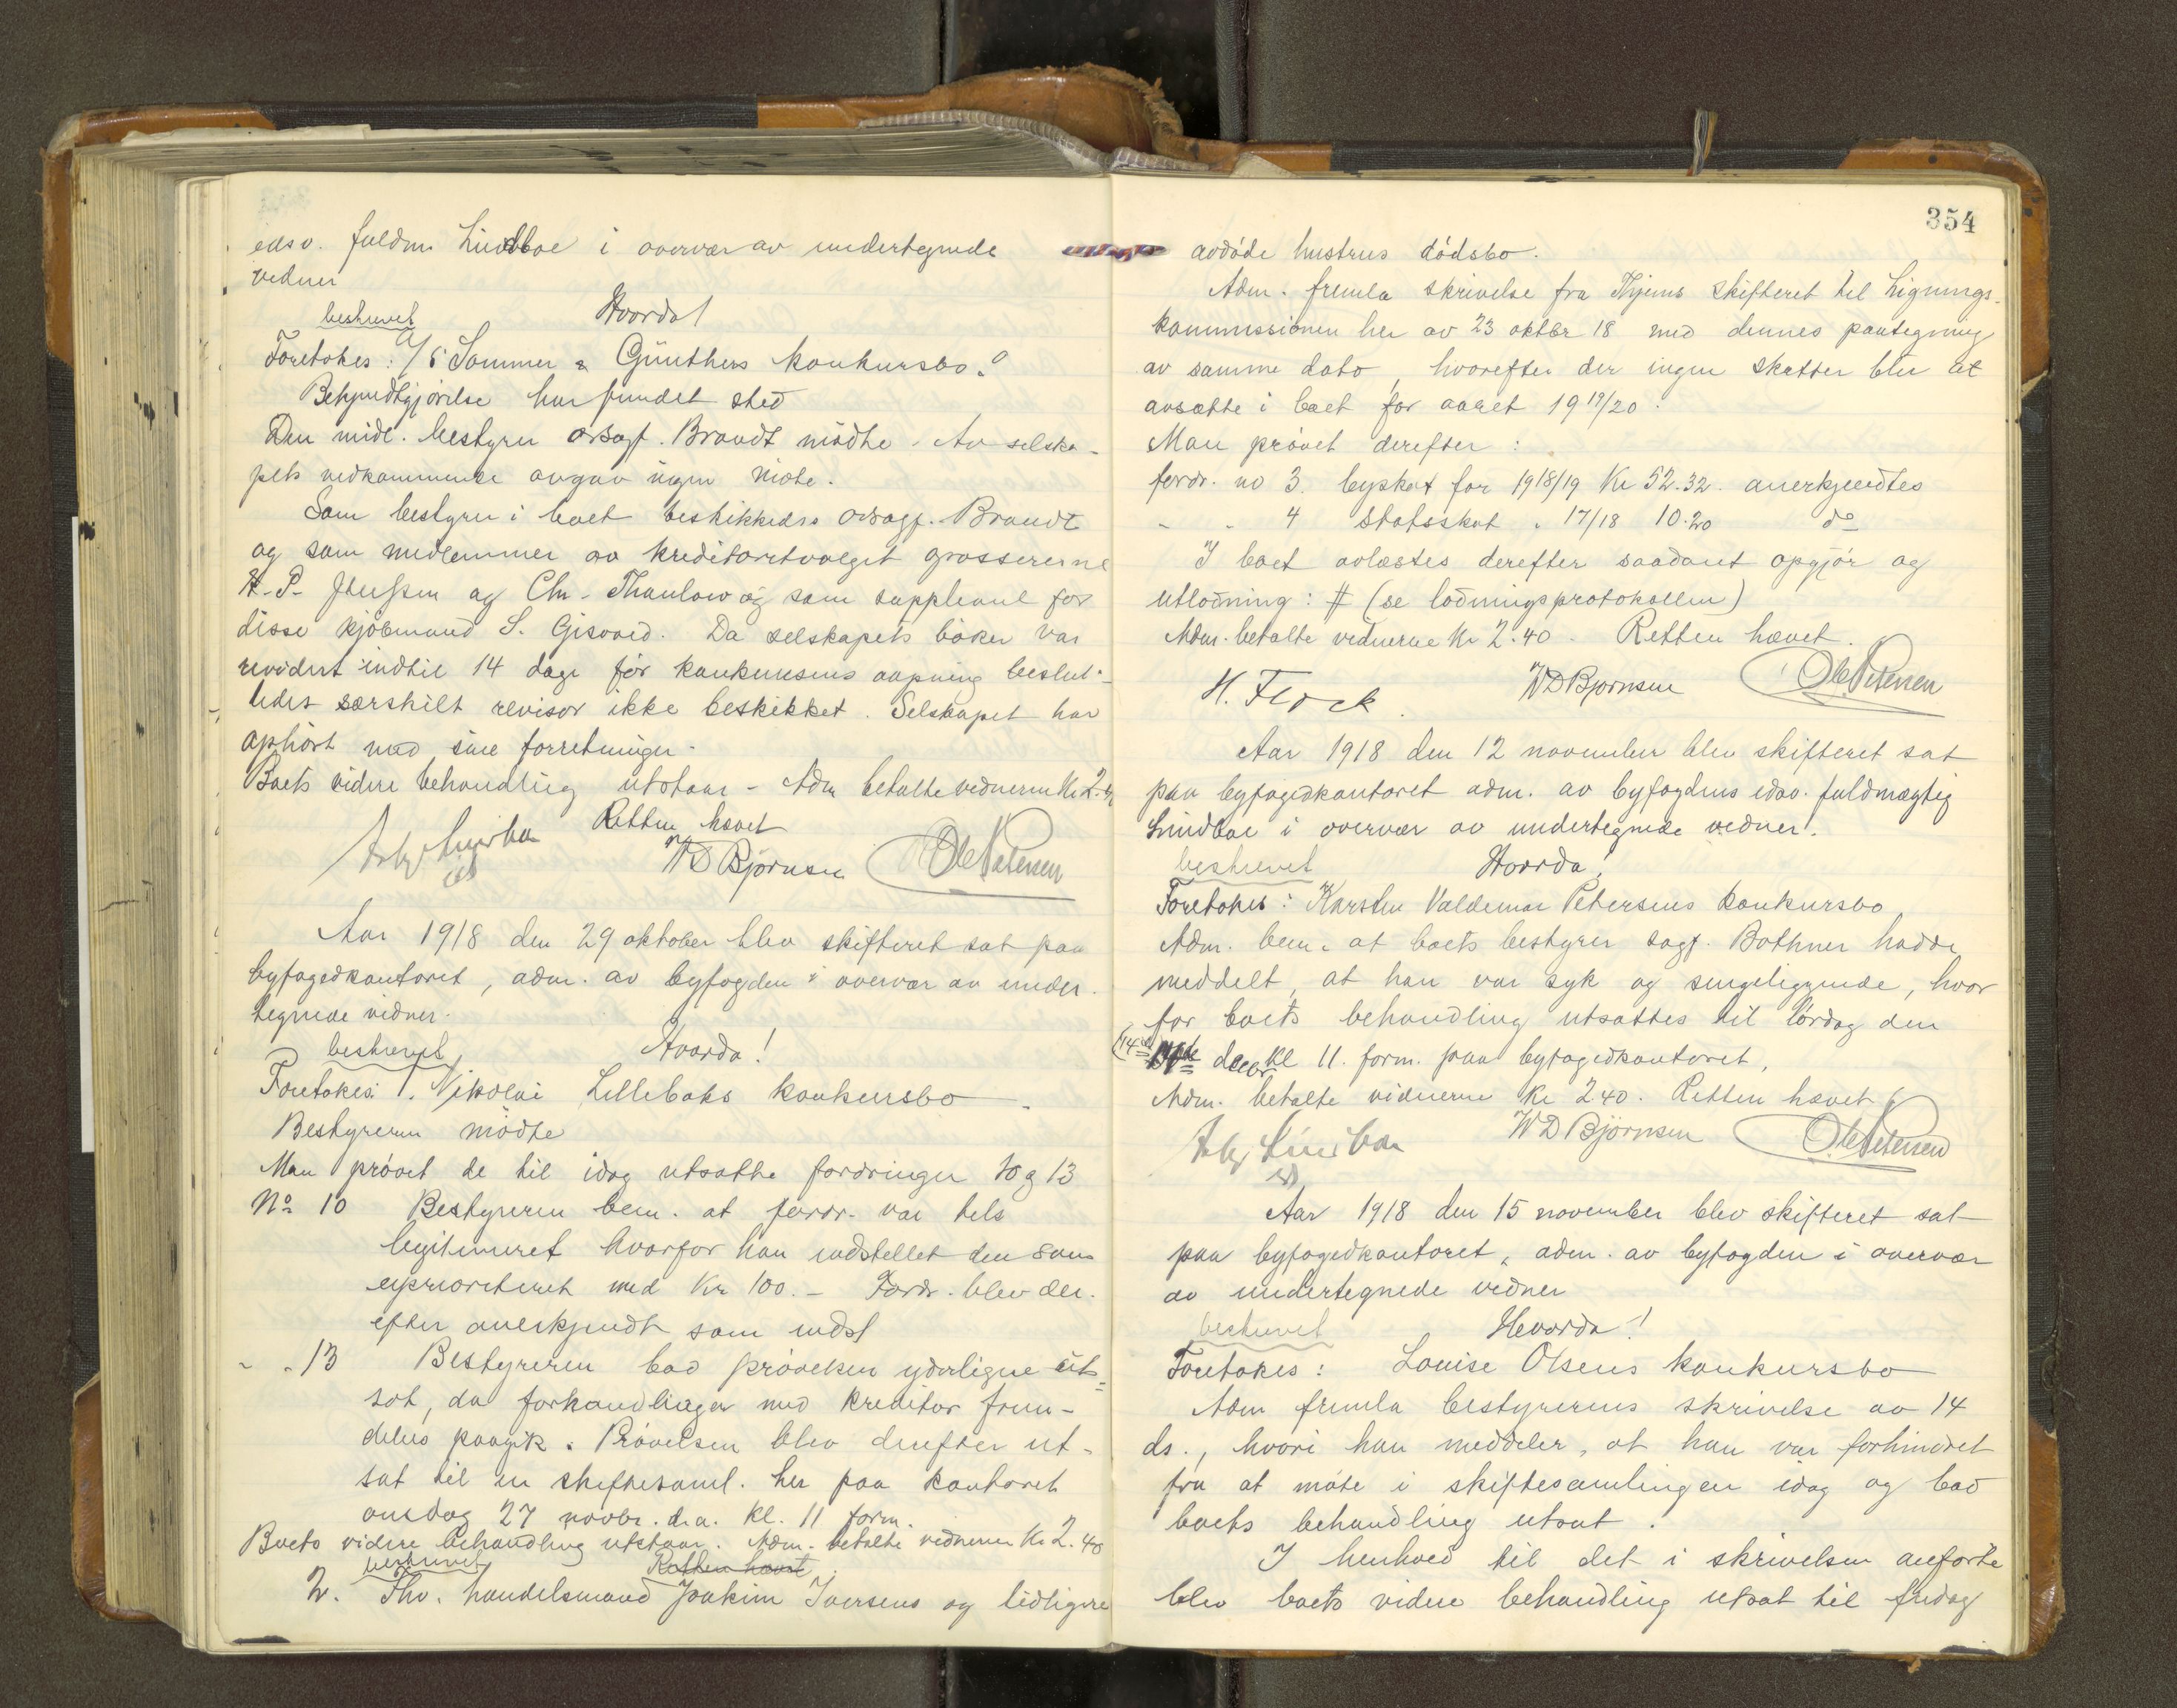 edsv. fuldm. Lindboe i overvær av undertegnede
vidner
beskrevet Hvorda!
Foretokes: A/S Sommer & Günthers konkursbo.
Bekjendtgjörelse har fundet sted
Den midl. bestyrer orsagf. Brandt mödte. Av selska-
pets vedkommende avgav ingen möte.
Som bestyrer i boet beskikkedes orsagf. Brandt
og som medlemmer av kreditorutvalget grossererne
H. P. Jenssen og Chr. Thaulow og som suppleant for
disse kjöbmand S. Gisvold. Da selskapets böker var
revidert indtil 14 dage för konkursens aapning beslut-
tedes særskilt revisor ikke beskikket. Selskapet har
ophört med sine forretninger.
Boets videre behandling utstaar - Adm betalte vidnerne Kr 2.40
Retten hævet
Lindboe WD Björnsen Ole Petersen
Aar 1918 den 29 oktober blev skifteret sat paa
byfogedkontoret, adm. av byfogden i overvær av under-
tegnede vidner.
beskrevet Hvorda!
Foretokes: 1. Nikolai Lillebaks konkursbo.
Bestyreren mödte
Man prövet de til idag utsatte fordringer 10 og 13
No 10 Bestyreren bem. at fordr. var dels
legitimeret hvorfor han indstellet den som
uprioriteret med Kr 100.- Fordr. blev der-
efter anerkjendt som indst
- - 13 Bestyreren bad prövelsen yderligere ut-
sat, da forhandlinger med kreditor frem-
deles paagik. Prövelsen blev derefter ut-
sat til en skiftesaml. her paa kontoret
onsdag 27 novbr. d.a. kl. 11 form.
Boets videre behandling utstaar. Adm. betalte vidnerne Kr 2.40
beskrevet Retten hævet
2. Fhv. handelsmand Joakim Iversens og tidligere
354
avdöde hustrus dödsbo.
Adm. fremla skrivelse fra Hjems skifteret til Lignings-
kommissionen her av 23 oktbr 18 med dennes paategning
av samme dato, hvorefter der ingen skatter blir at
avsætte i boet for aaret 1919/20.
Man prövet derefter:
fordr. no 3. byskat for 1918/19 Kr 52.32. anerkjendtes
- - 4 statsskat " 17/18 10.20 do
I boet avlæstes derefter saadant opgjör og
utlodning: # (se lodningsprotokollen)
Adm. betalte vidnerne Kr 2.40. Retten hævet.
H. Flock. WD Björnsen Ole Petersen
Aar 1918 den 12 november blev skifteret sat
paa byfogedkontoret adm. av byfogdens edsv. fuldmægtig
Lindboe i overvær av undertegnede vidner.
beskrevet Hvorda!
Foretokes: Karsten Valdemar Petersens konkursbo
Adm. bem. at boets bestyrer sagf. Bothner hadde
meddelt, at han var syk og sengeliggende, hvor
for boets behandling utsattes til lördag den
14de decbr kl 11. form. paa byfogedkontoret,
Adm. betalte vidnerne Kr 2.40. Retten hævet
Lindboe WD Björnsen Ole Petersen
Aar 1918 den 15 november blev skifteret sat
paa byfogedkontoret, adm. av byfogden i overvær
av undertegnede vidner
beskrevet Hvorda!
Foretokes: Louise Olsens konkursbo
Adm fremla bestyrerens skrivelse av 14
ds., hvori han meddeler, at han var forhindret
fra at möte i skiftesamlingen idag og bad
boets behandling utsat.
I henhold til det i skrivelsen anförte
blev boets videre behandling utsat til fredag